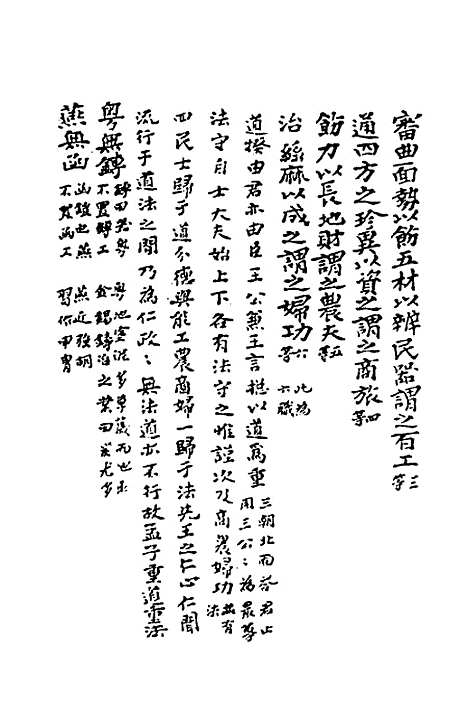 審曲面勢以飭五材以辨民器謂之百工三等
通四方之珍異以資之謂之商旅四等
飭力以長地財謂之農夫五等
治絲麻以成之謂之婦功六等 此為六職
道揆由君亦由臣王公兼王言摠以道為重 三朝北面答君止用三公〻為最尊
法守自士大夫始上下各有法守之惟謹次及商農婦功 並有法
四民士歸于道分德與能工農商婦一歸于法先王之仁心仁聞
流行于道法之間乃為仁政〻無法道亦不行故孟子重道重法
粵無鎛 鎛田器粵不置鎛工 粵地塗泥多草薉而山出金錫鑄冶之業田器尤多
燕無函 函鎧也燕不置函工 燕近強胡習作甲冑